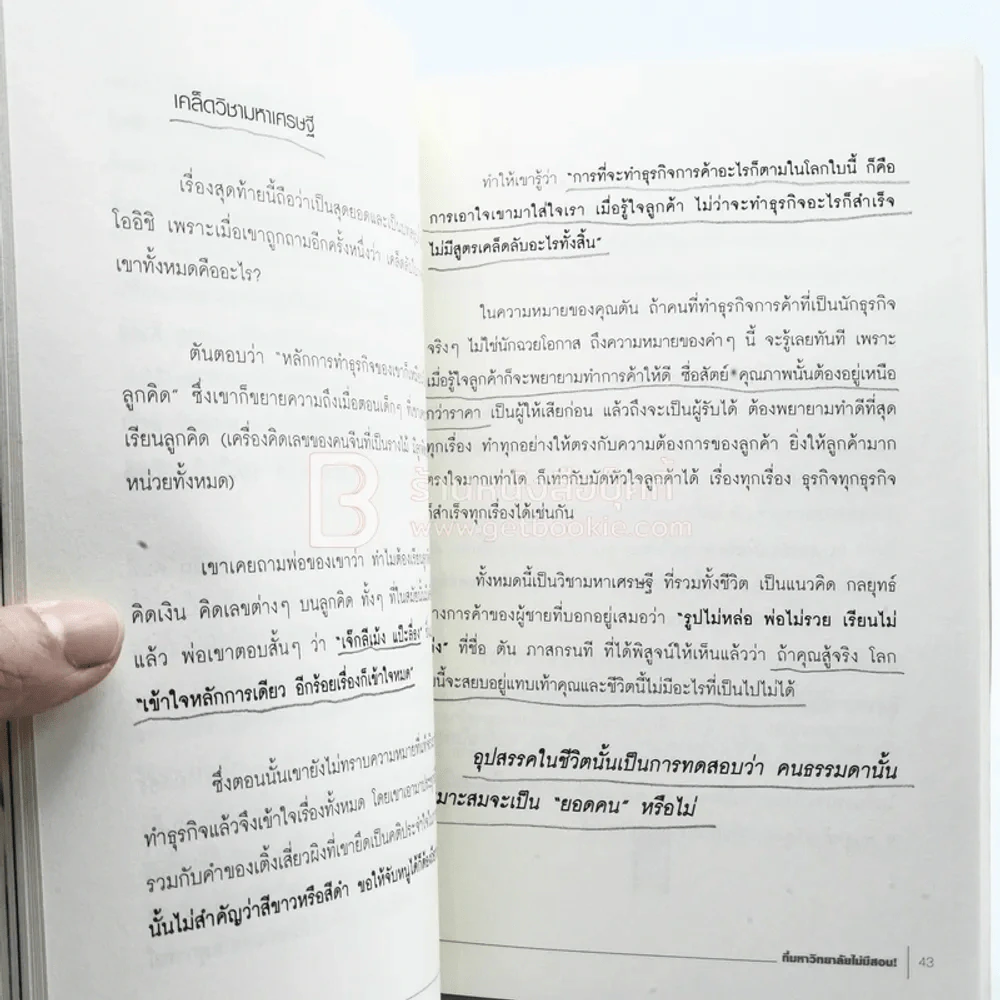 เคล็ดวิชามหาเศรษฐี
เรื่องสุดท้ายนี้ถือว่าเป็นสุดยอดและเป็น
โออิชิ เพราะเมื่อเขาถูกถามอีกครั้งหนึ่งว่า
เขาทั้งหมดคืออะไร?
ตันตอบว่า "หลักการทำธุรกิจของเขาก็
ลูกคิด" ซึ่งเขาก็ขยายความถึงเมื่อตอนเด็กๆ
เรียนลูกคิด (เครื่องคิดเลขของคนจีนที่เป็นรางไม้
หน่วยทั้งหมด)
เขาเคยถามพ่อของเขาว่า ทำไมต้องเรียน
คิดเงิน คิดเลขต่างๆ บนลูกคิด ทั้งๆ ที่ในสมัยนั้น
แล้ว พ่อเขาตอบสั้นๆ ว่า "เจ็กลีเม้ง แป๊ะลี่ง"
"เข้าใจหลักการเดียว อีกร้อยเรื่องก็เข้าใจหมด"
ซึ่งตอนนั้นเขายังไม่ทราบความหมายที่
ทำธุรกิจแล้วจึงเข้าใจเรื่องทั้งหมด โดยเขาเอามา
รวมกับคำของเติ้งเสี่ยวผิงที่เขายึดเป็นคติประจำใจ
นั้นไม่สำคัญว่าสีขาวหรือสีดำ ขอให้จับหนูได้ก็
ทำให้เขารู้ว่า "การที่จะทำธุรกิจการค้าอะไรก็ตามในโลกใบนี้ ก็คือ
การเอาใจเขามาใส่ใจเรา เมื่อรู้ใจลูกค้า ไม่ว่าจะทำธุรกิจอะไรก็สำเร็จ
ไม่มีสูตรเคล็ดลับอะไรทั้งสิ้น"
ในความหมายของคุณตัน ถ้าคนที่ทำธุรกิจการค้าที่เป็นนักธุรกิจ
จริงๆ ไม่ใช่นักฉวยโอกาส ถึงความหมายของคำๆ นี้ จะรู้เลยทันที เพราะ
เมื่อรู้ใจลูกค้าก็จะพยายามทำการค้าให้ดี ซื่อสัตย์ คุณภาพนั้นต้องอยู่เหนือ
กว่าราคา เป็นผู้ให้เสียก่อน แล้วถึงจะเป็นผู้รับได้ ต้องพยายามทำดีที่สุด
ทุกเรื่อง ทำทุกอย่างให้ตรงกับความต้องการของลูกค้า ยิ่งให้ลูกค้ามาก
ตรงใจมากเท่าใด ก็เท่ากับมัดหัวใจลูกค้าได้ เรื่องทุกเรื่อง ธุรกิจทุกธุรกิจ
ก็สำเร็จทุกเรื่องได้เช่นกัน
ทั้งหมดนี้เป็นวิชามหาเศรษฐี ที่รวมทั้งชีวิต เป็นแนวคิด กลยุทธ์
ทางการค้าของผู้ชายที่บอกอยู่เสมอว่า "รูปไม่หล่อ พ่อไม่รวย เรียนไม่
เก่ง" ที่ชื่อ ตัน ภาสกรนที ที่ได้พิสูจน์ให้เห็นแล้วว่า ถ้าคุณสู้จริง โลก
นี้จะสยบอยู่แทบเท้าคุณและชีวิตนี้ไม่มีอะไรที่เป็นไปไม่ได้
อุปสรรคในชีวิตนั้นเป็นการทดสอบว่า คนธรรมดานั้น
เหมาะสมจะเป็น "ยอดคน" หรือไม่
ที่มหาวิทยาลัยไม่มีสอน! 43
B ร้านหนังสือบุ๊คกี้
www.getbookie.com